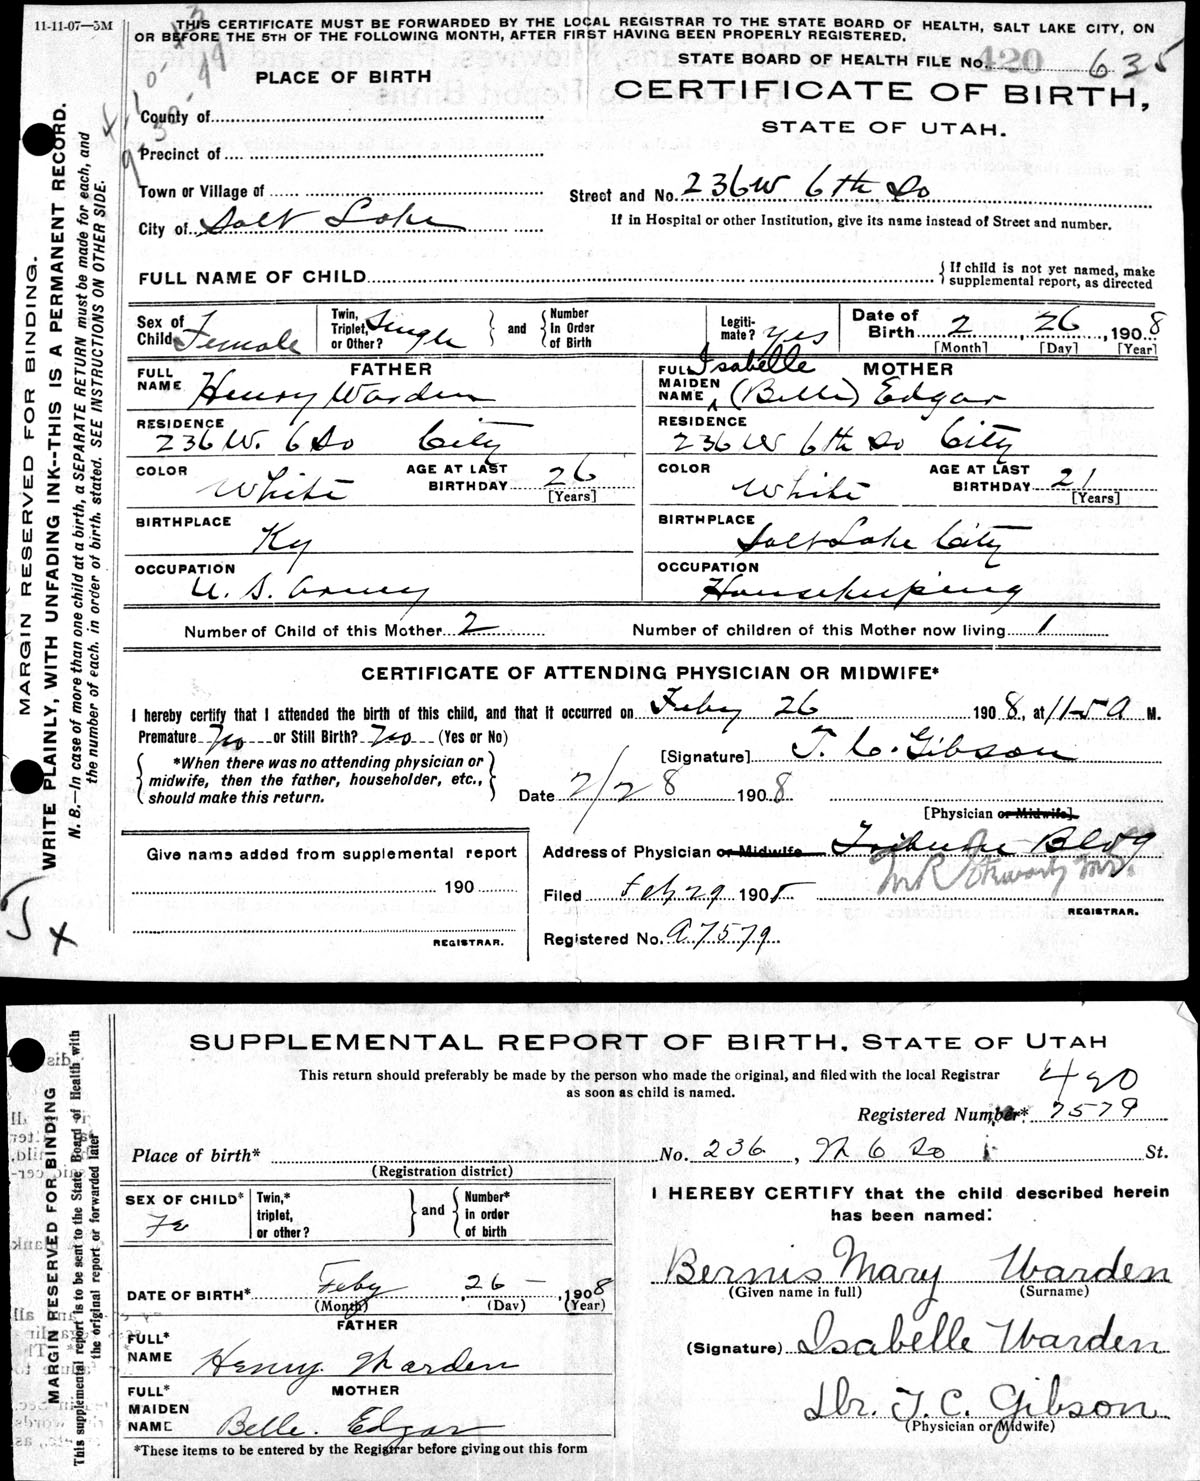 11-11-07—5M
THIS CERTIFICATE MUST BE FORWARDED BY THE LOCAL REGISTRAR TO THE STATE BOARD OF HEALTH, SALT LAKE CITY, ON
OR BEFORE THE 5TH OF THE FOLLOWING MONTH, AFTER FIRST HAVING BEEN PROPERLY REGISTERED.
STATE BOARD OF HEALTH FILE No. 420 635
PLACE OF BIRTH
CERTIFICATE OF BIRTH,
STATE OF UTAH.
County of
Precinct of
Town or Village of
City of Salt Lake
Street and No. 236 W 6th So
If in Hospital or other Institution, give its name instead of Street and number.
FULL NAME OF CHILD
{If child is not yet named, make
supplemental report, as directed
Sex of Child Female
Twin, Triplet, or Other? Single
and
Number In Order of Birth
Legitimate? Yes
Date of Birth 2 26, 1908
[Month] [Day] [Year]
FATHER
FULL NAME Henry Warden
RESIDENCE
236 W. 6 So City
COLOR White
AGE AT LAST BIRTHDAY 26
[Years]
BIRTHPLACE
Ky
OCCUPATION
U. S. Army
MOTHER
FULL MAIDEN NAME Isabelle (Belle) Edgar
RESIDENCE
236 W 6th So City
COLOR White
AGE AT LAST BIRTHDAY 21
[Years]
BIRTHPLACE
Salt Lake City
OCCUPATION
Housekeeping
Number of Child of this Mother 2
Number of children of this Mother now living 1
CERTIFICATE OF ATTENDING PHYSICIAN OR MIDWIFE*
I hereby certify that I attended the birth of this child, and that it occurred on Feby 26 1908, at 1150 M.
Premature? No or Still Birth? No (Yes or No)
*When there was no attending physician or
midwife, then the father, householder, etc.,
should make this return.
[Signature] T. C. Gibson
Date 2/28 1908
[Physician or Midwife]
Give name added from supplemental report
190
REGISTRAR.
Address of Physician or Midwife Tribune Bldg
Filed Feb 29 1908
REGISTRAR.
Registered No. A7579
MARGIN RESERVED FOR BINDING.
WRITE PLAINLY, WITH UNFADING INK--THIS IS A PERMANENT RECORD.
N. B.—In case of more than one child at a birth, a SEPARATE RETURN must be made for each, and
the number of each, in order of birth, stated. SEE INSTRUCTIONS ON OTHER SIDE.
SUPPLEMENTAL REPORT OF BIRTH, STATE OF UTAH
This return should preferably be made by the person who made the original, and filed with the local Registrar
as soon as child is named.
420
Registered Number* 7579
Place of birth*
(Registration district)
No. 236, W 6 So St.
SEX OF CHILD* Fe
Twin,* triplet, or other?
and
Number* in order of birth
I HEREBY CERTIFY that the child described herein
has been named:
DATE OF BIRTH* Feby 26 - 1908
(Month) (Day) (Year)
Bernis Mary Warden
(Given name in full) (Surname)
FATHER
FULL* NAME Henry Warden
(Signature) Isabelle Warden
MOTHER
FULL* MAIDEN NAME Belle. Edgar
Dr. T. C. Gibson
(Physician or Midwife)
*These items to be entered by the Registrar before giving out this form
MARGIN RESERVED FOR BINDING
This supplemental report is to be sent to the State Board of Health with
the original report or forwarded later